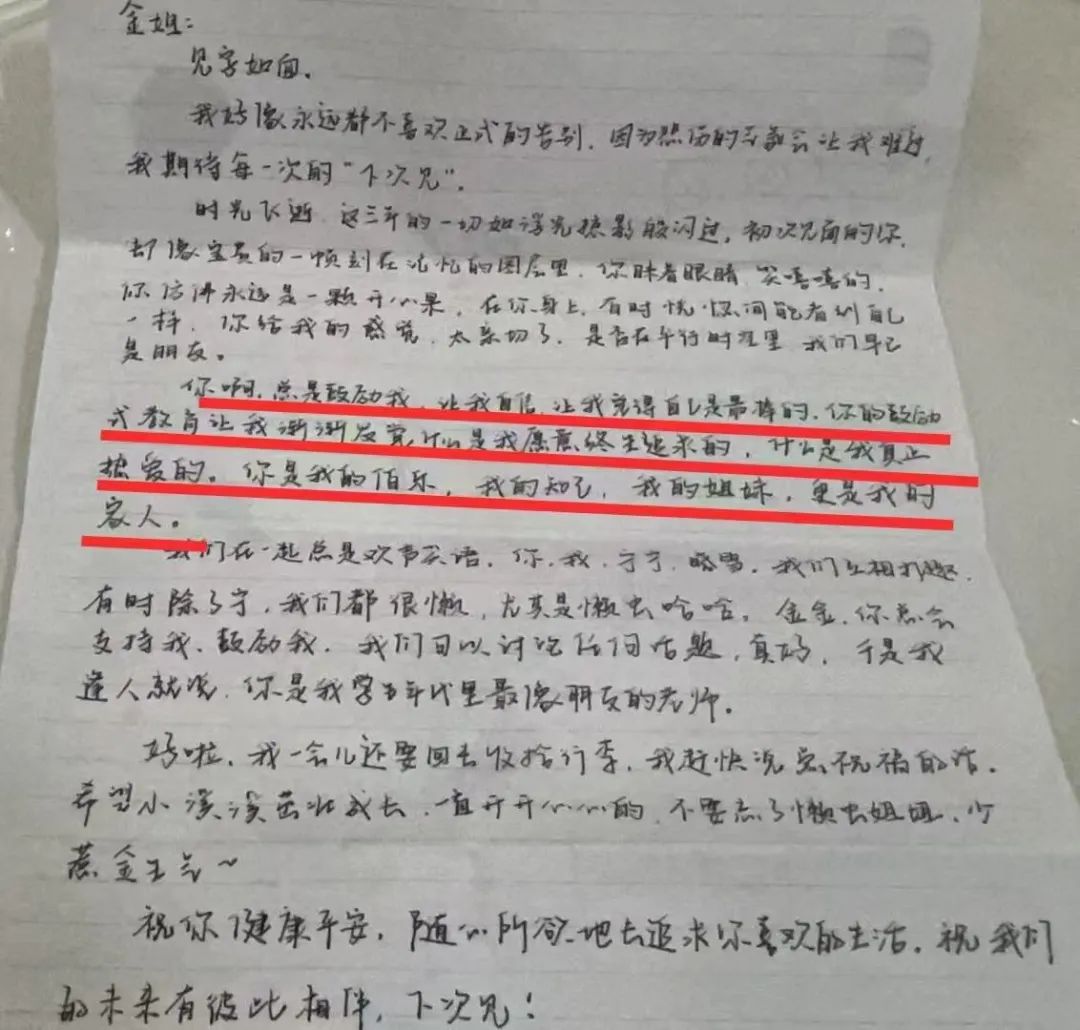 金姐：
见字如面。
我好像永远都不喜欢正式的告别，因为煦伤的气氛会让我难过，
我期待每一次的“下次见”。
时光飞逝，这三年的一切如浮光掠影般闪过，初次见面的你，
却像宝贵的一帧刻在记忆的图层里，你眯着眼睛，笑嘻嘻的，
你仿佛永远是一颗开心果，在你身上，有时恍惚间能看到自己
一样，你给我的感觉，太亲切了，是否在平行时空里，我们早已
是朋友。
你啊，总是鼓励我，让我自信，让我觉得自己是最棒的，你的鼓励
式教育让我渐渐发觉什么是我愿意终生追求的，什么是我真正
热爱的。你是我的伯乐，我的知己，我的姐妹，更是我的
家人。
我们在一起总是欢声笑语，你，我，宁宁，晓雪，我们互相打趣，
有时除了宁，我们都很懒，尤其是懒虫哈哈。金金，你总会
支持我、鼓励我，我们可以讨论任何话题，真好，于是我
逢人就说，你是我学生年代里最像朋友的老师。
好啦，我一会儿还要回去收拾行李，我赶快说完祝福的话。
希望小溪溪茁壮成长，一直开开心心的，不要忘了懒虫姐姐，少
惹金生气~
祝你健康平安，随心所欲地去追求你喜欢的生活，祝我们
的未来有彼此相伴，下次见！